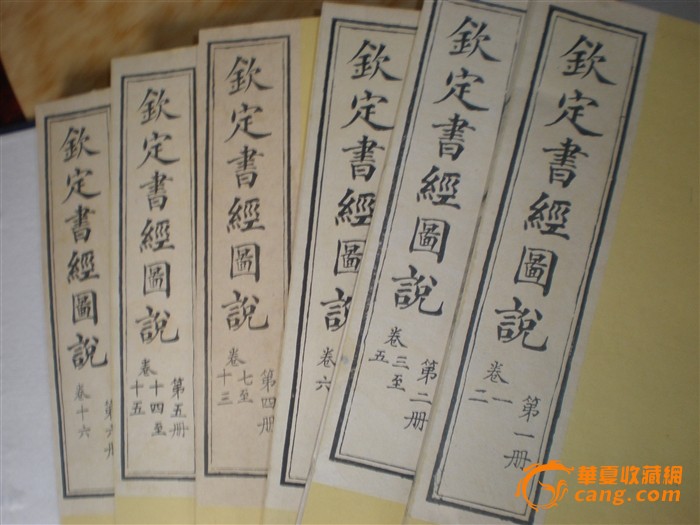 欽定書經圖說
第一册
卷一
二
欽定書經圖說
第二册
卷三至
五
欽定書經圖說
卷六
欽定書經圖說
第四册
卷七至
十三
欽定書經圖說
第五册
卷十四至
十五
欽定書經圖說
第六册
卷十六
華夏收藏網
cang.com